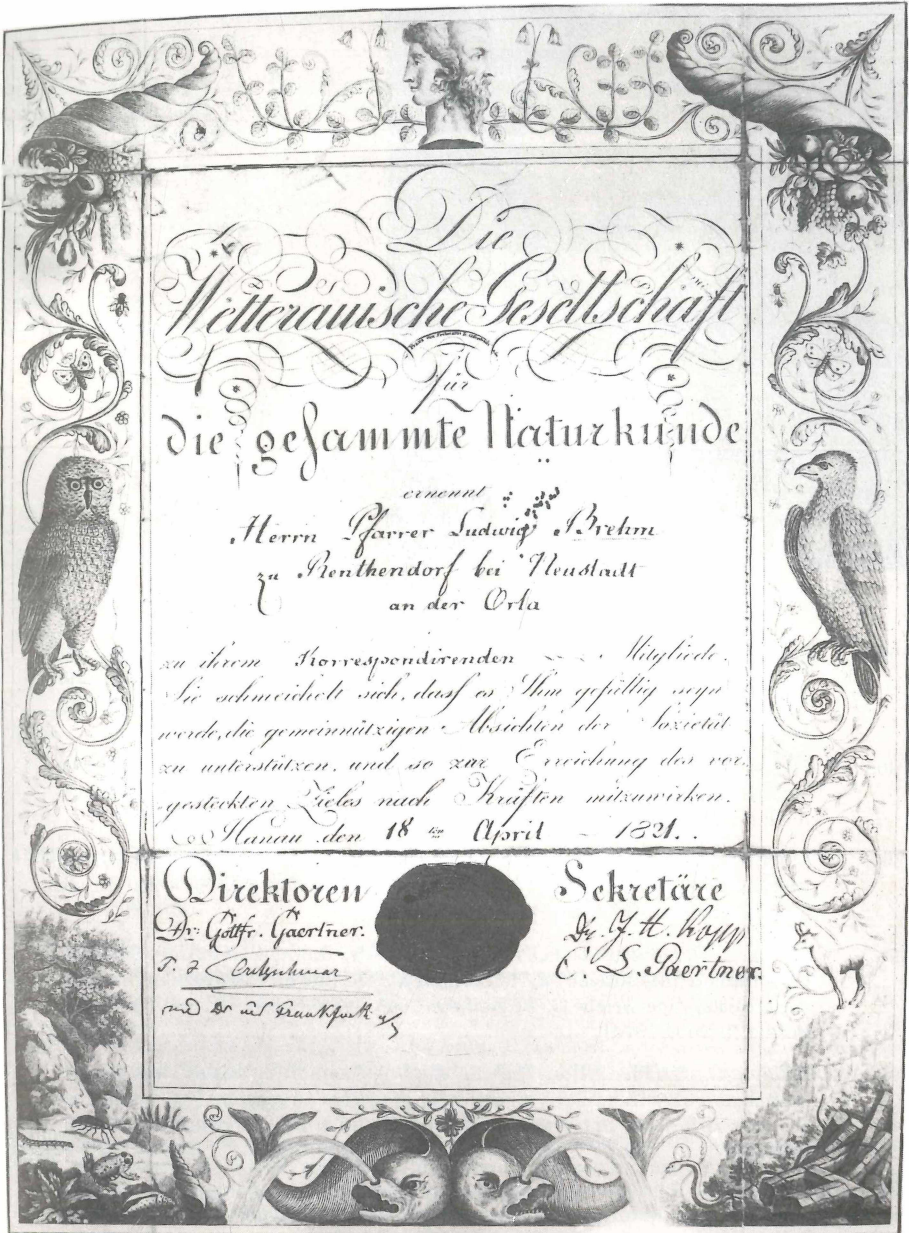 Die
Wetterauische Gesellschaft
für
die gesammte Naturkunde
ernennt
Herrn Pfarrer Ludwig Brehm
zu Renthendorf bei Neustadt
an der Orla
zu ihrem Korrespondirenden Mitgliede.
Sie schmeichelt sich, dass es Ihm gefällig seyn
werde, die gemeinnützigen Absichten der Sozietät
zu unterstützen, und so zur Erreichung des vor,
gesteckten Zieles nach Kräften mitzuwirken.
Hanau den 18ten April 1821.
Direktoren
Dr. Gottfr. Gaertner.
med Dr aus Frankfurt a/
Sekretäre
Dr. J. H. Kopp
C. L. Gaertner.